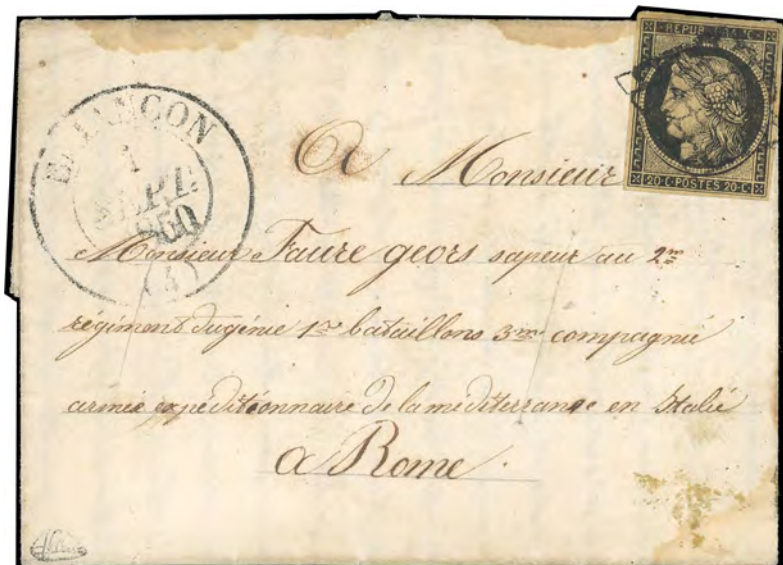 REPUB FRANC
20·C·POSTES 20·C·
BRIANÇON
1
SEPT.
1850
(4)
A Monsieur
Monsieur Faure geors sapeur au 2me
régiment dugénie 1er bataillons 3me compagnié
armée expéditionnaire de la méditerranée en Italié
a Rome.